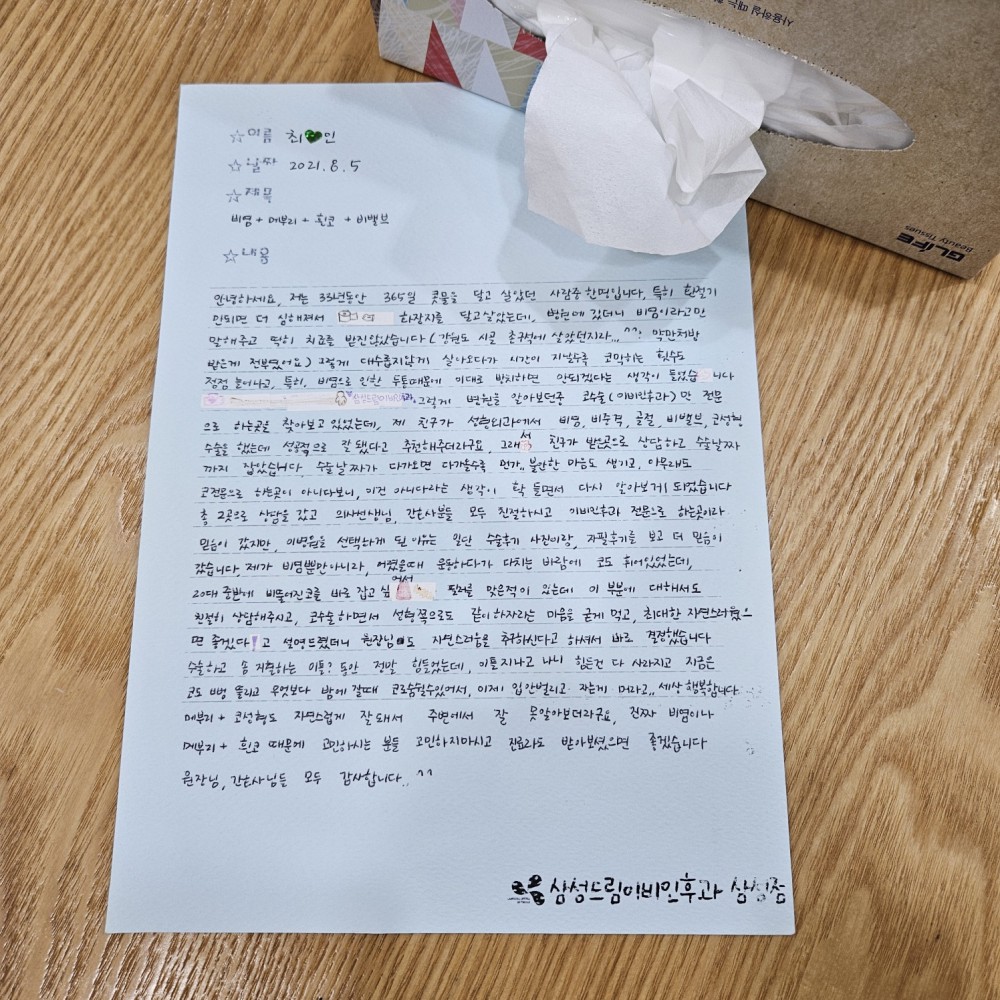 사용하실 때는
GLIFE
Beauty Tissues
☆이름 최 인
☆날짜 2021.8.5
☆제목
비염 + 메부리 + 휜코 + 비밸브
☆내용
안녕하세요, 저는 33년동안 365일 콧물을 달고 살았던 사람중 한명입니다, 특히 환절기
만되면 더 심해져서 화장지를 달고살았는데, 병원에 갔더니 비염이라고만
말해주고 딱히 치료를 받진않았습니다 (강원도 시골 촌구석에 살았던지라... ^^; 약만처방
받은게 전부였어요) 그렇게 대수롭지않게 살아오다가 시간이 지날수록 코막히는 횟수도
점점 늘어나고, 특히, 비염으로 인한 두통때문에 이대로 방치하면 안되겠다는 생각이 들었습니다
그렇게 병원을 알아보던중 코수술(이비인후과)만 전문
으로 하는곳을 찾아보고 있었는데, 제 친구가 성형외과에서 비염, 비중격, 골절, 비밸브, 코성형
수술을 했는데 성공적으로 잘 됐다고 추천해주더라구요, 그래서 친구가 받은곳으로 상담하고 수술날짜
까지 잡았습니다 수술날짜가 다가오면 다가올수록 먼가.. 불안한 마음도 생기고, 아무래도
코전문으로 하는곳이 아니다보니, 이건 아니다라는 생각이 탁 들면서 다시 알아보게 되었습니다
총 2곳으로 상담을 갔고 의사선생님, 간호사분들 모두 친절하시고 이비인후과 전문으로 하는곳이라
믿음이 갔지만, 이병원을 선택하게 된 이유는 일단 수술후기 사진이랑, 자필후기를 보고 더 믿음이
갔습니다, 제가 비염뿐만아니라, 어렸을때 운동하다가 다치는 바람에 코도 휘어있었는데,
20대 중반에 비뚤어진코를 바로 잡고 싶어서 필러를 맞은적이 있는데 이 부분에 대해서도
친절히 상담해주시고, 코수술하면서 성형쪽으로도 같이하자라는 마음을 굳게 먹고, 최대한 자연스러웠으
면 좋겠다고 설명드렸더니 원장님도 자연스러움을 추구하신다고 하셔서 바로 결정했습니다
수술하고 솜 지혈하는 이틀? 동안 정말 힘들었는데, 이틀지나고 나니 힘든건 다 사라지고 지금은
코도 뻥 뚫리고 무엇보다 밤에 잘때 코로숨쉴수있어서, 이제 입안벌리고 자는게 머라고.. 세상 행복합니다
메부리 + 코성형도 자연스럽게 잘돼서 주변에서 잘 못알아보더라구요, 진짜 비염이나
메부리 + 휜코 때문에 고민하시는 분들 고민하지마시고 진료라도 받아보셨으면 좋겠습니다
원장님, 간호사님들 모두 감사합니다.. ^^
삼성드림이비인후과 삼성점